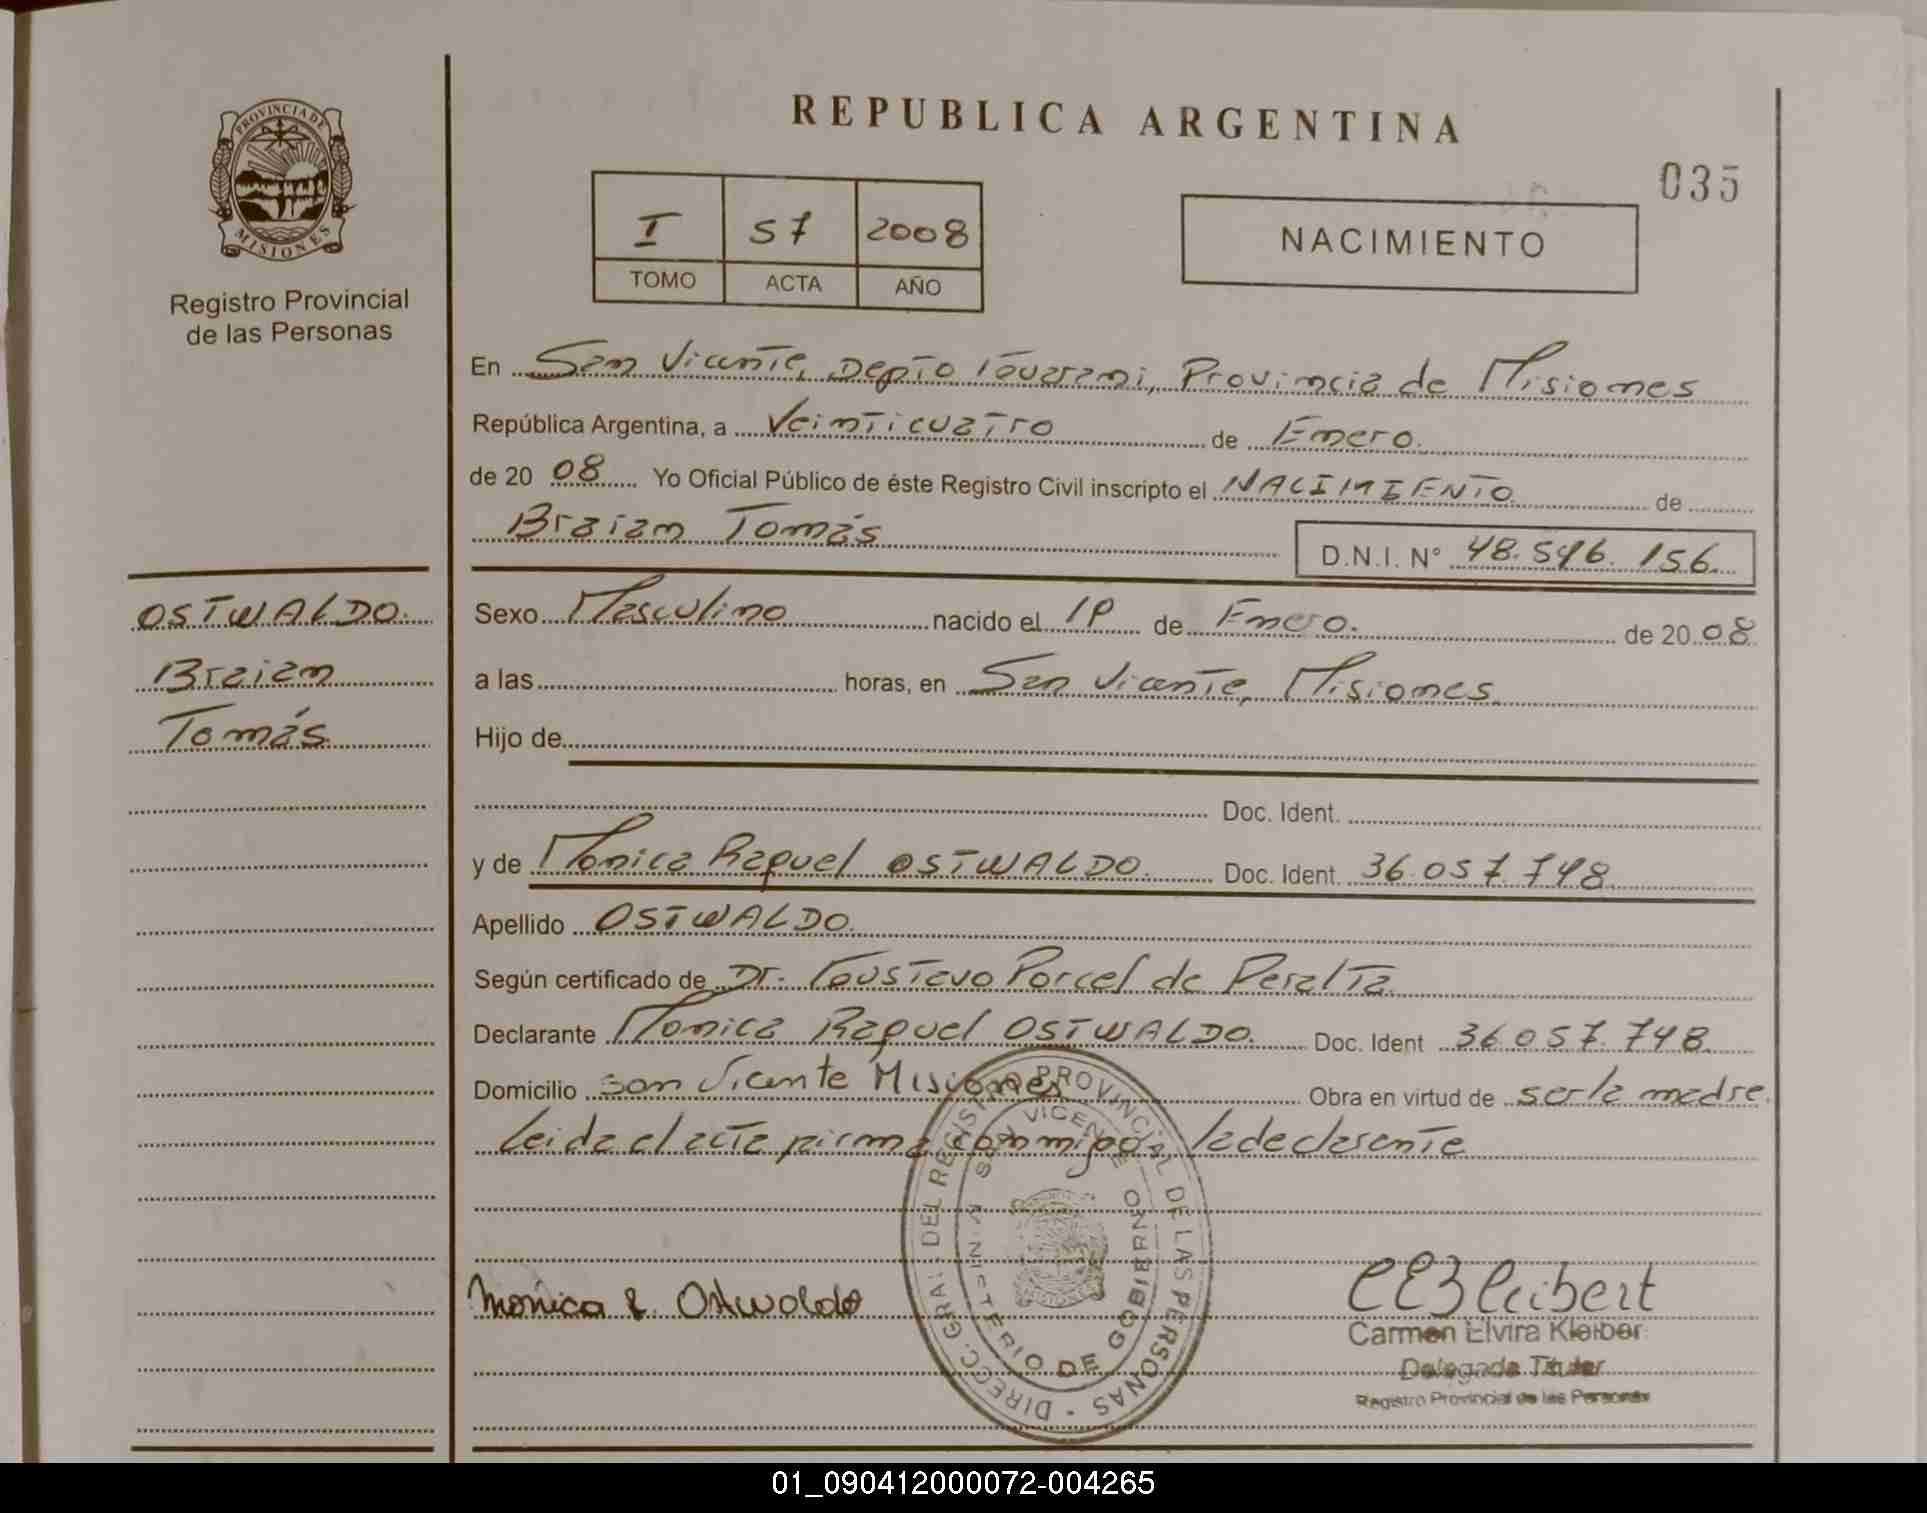 PROVINCIA DE
MISIONES
Registro Provincial
de las Personas
REPUBLICA ARGENTINA
035
I 57 2008
TOMO ACTA AÑO
NACIMIENTO
En San Vicente, Depto Guaraní, Provincia de Misiones
República Argentina, a Veinticuatro de Enero.
de 2008 Yo Oficial Público de éste Registro Civil inscripto el NACIMIENTO de
Braian Tomás D.N.I. N° 48.546.156
OSTWALDO.
Braian
Tomás
Sexo Masculino nacido el de Enero. de 2008
a las horas, en San Vicente, Misiones
Hijo de
Doc. Ident.
y de Monica Raquel OSTWALDO. Doc. Ident. 36.057.748
Apellido OSTWALDO.
Según certificado de Dr. Gustavo Porcel de Peralta
Declarante Monica Raquel OSTWALDO. Doc. Ident 36.057.748
Domicilio San Vicente Misiones Obra en virtud de ser la madre.
Leida el acta firma conmigo la declarante
DIRECC. GRAL. DEL REGISTRO PROVINCIAL DE LAS PERSONAS
SAN VICENTE
MINISTERIO DE GOBIERNO
Monica R. Ostwaldo
Carmen Elvira Kleiber
Delegada Titular
Registro Provincial de las Personas
01_090412000072-004265